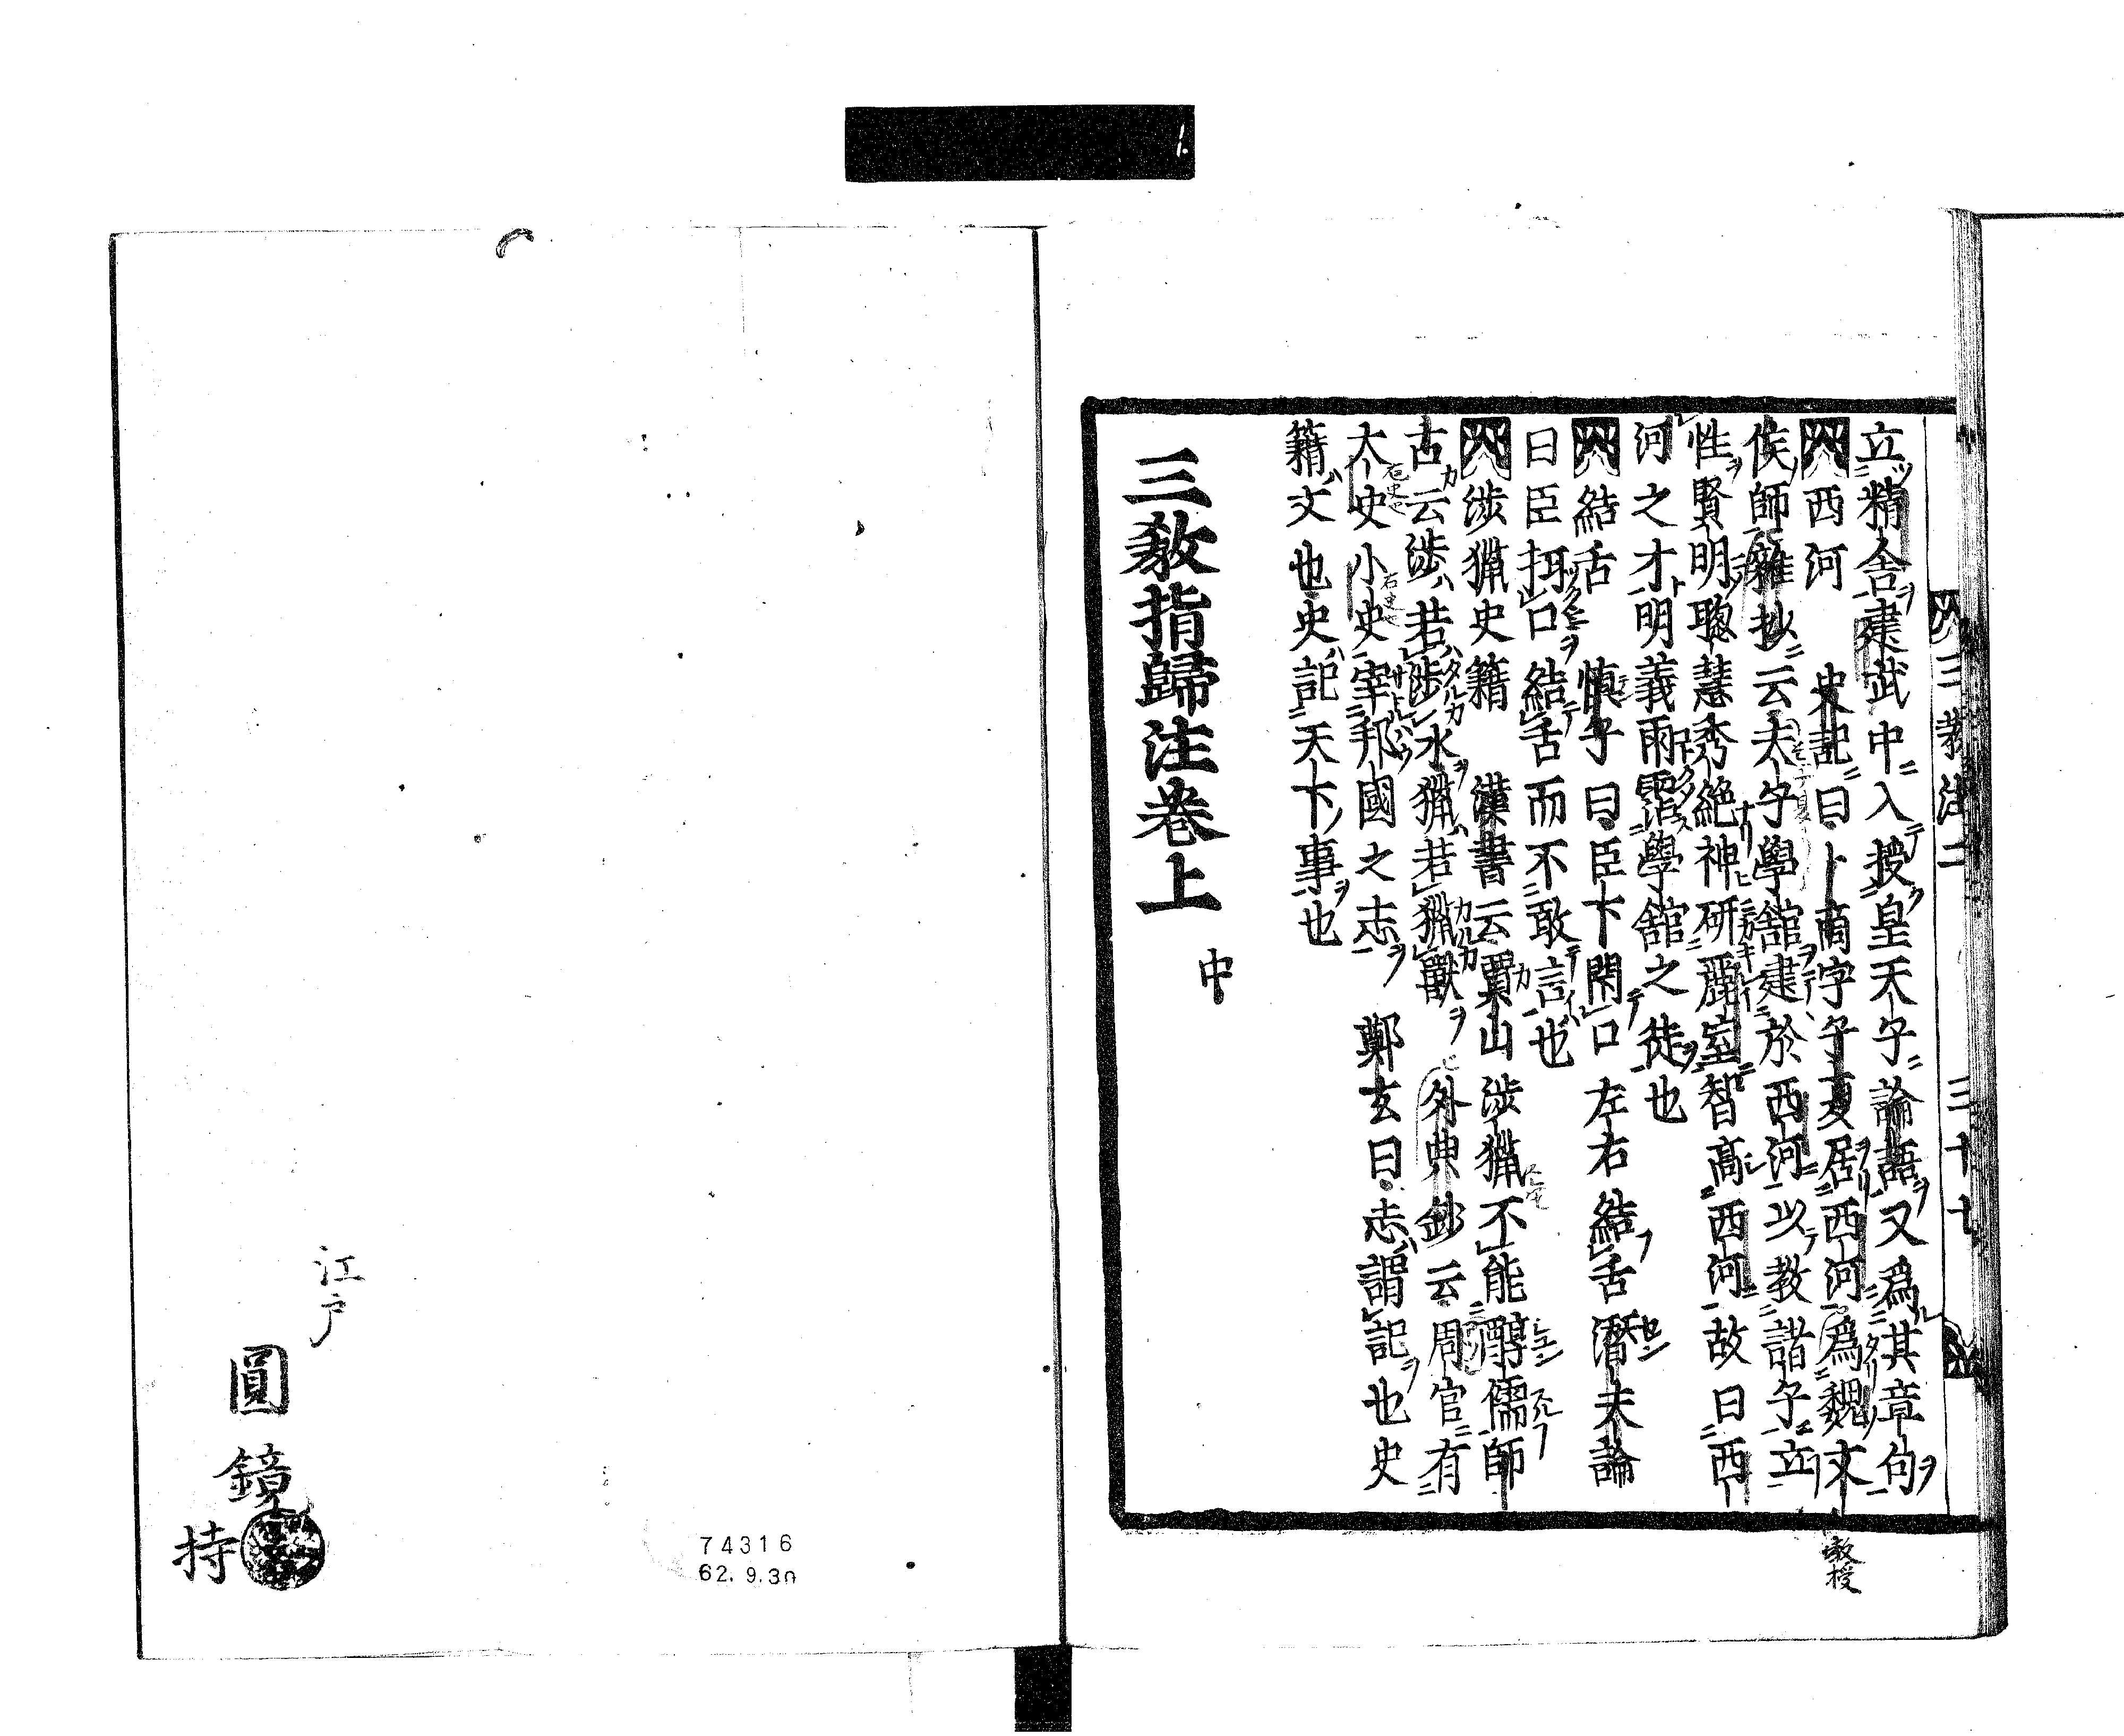 三教注二 三十七
立精舍建武中入授皇天子論語又爲其章句
西河 史記曰卜商字子夏居西河爲魏文
教授
侯師雜抄云夫子學舘建於西河以教諸子立
性賢明聡慧秀絶神研麗室智髙西河故曰西
河之才明義雨霑學舘之徒也
結舌 慎子曰臣下閇口左右結舌潛夫論
曰臣挕口結舌而不敢言也
涉獵史籍 漢書云賈山涉獵不能醇儒師
古云涉若涉水獵若獵獸 外典鈔云周官有
大史小史宰邦國之志 鄭玄曰志謂記也史
籍文也史記天下事也
三敎指歸注卷上 中
江户
圓鏡
持
74316
62.9.30